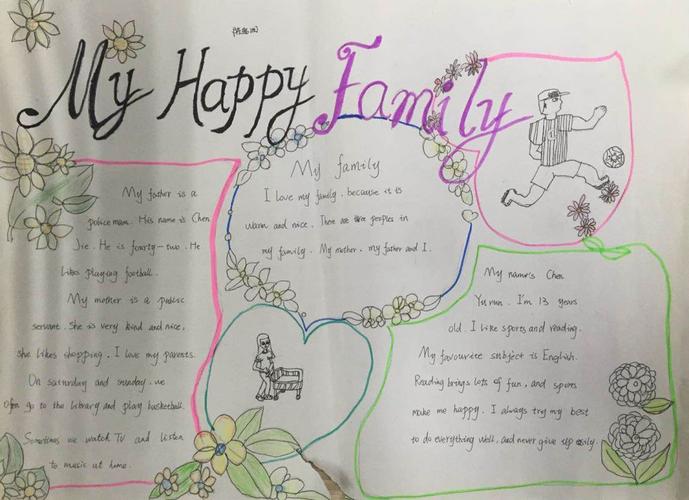 My Happy Family
My father is a
policeman. His name is Chen
Jie. He is foorty-two. He
likes playing football.
My mother is a public
servant. She is very kind and nice,
she likes shopping. I love my parents.
On saturday and sunday. we
often go to the library and play basketball.
Sometimes we watch TV and listen
to music at home.
My family
I love my family. because it is
warm and nice. There are three peoples in
my family. My mother, my father and I.
My name's Chen
Yurun. I'm 13 years
old. I like sports and reading.
My favourite subject is English.
Reading brings lots of fun, and sports
make me happy. I always try my best
to do everything well, and never give up easily.